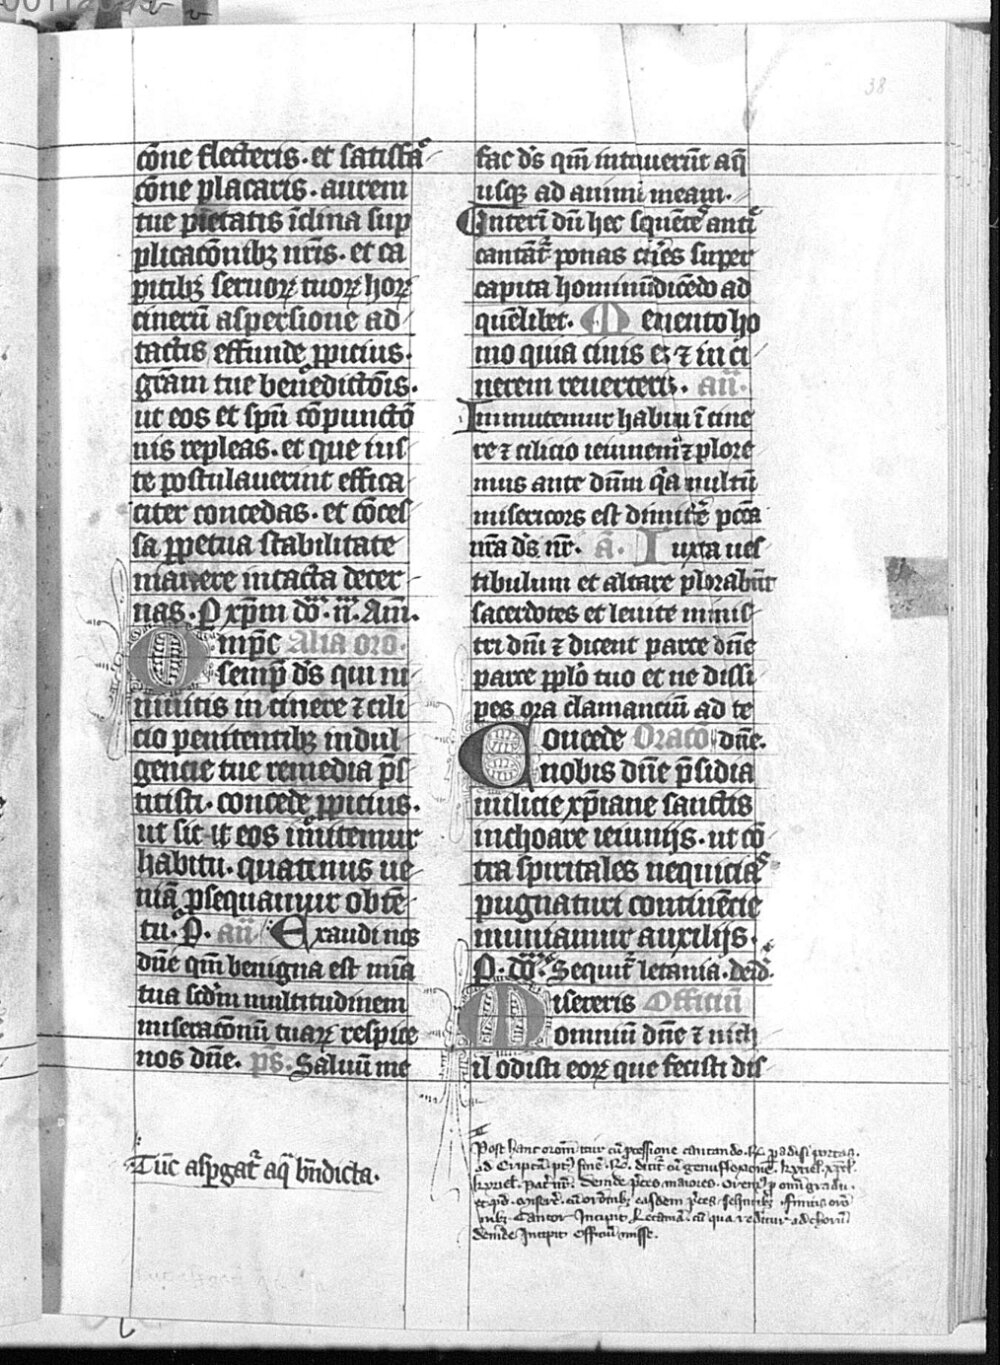 38
cōne flecteris. et satisfa
cōne placaris. aurem
tue pietatis īclina sup
plicacōnibꝫ nrīs. et ca
pitibꝫ seruoꝝ tuoꝝ hoꝝ
cinerū aspersione ad
tactis effunde ꝓpicius.
grām tue benedictōis.
ut eos et spū cōpunctō
nis repleas. et que ius
te postulauerint effica
citer concedas. et cōces
sa ꝑpetua stabilitate
manere intacta decer
nas. P xp̄m dō. n̄. Am̄.
Omp̄c Alia orō.
semp̄ ds̄ qui ni
niuitis in cinere ⁊ cili
cio penitentibꝫ indul
gencie tue remedia p̄s
titisti. concede ꝓpicius.
ut sic eos imitemur
habitu. quatinus ue
niā ꝓsequamur obtē
tu. P. an̄ Exaudi nos
dn̄e qm̄ benigna est mīa
tua scd̄m multitudinem
miseracōnū tuaꝝ respice
nos dn̄e. ps. Saluū me
Tūc asꝑgat̄ aq̄ bn̄dicta.
fac ds̄ qm̄ intrauerūt aq̄
usqꝫ ad animā meam.
Interī dū hec sequētes antī
cantāt̄ ponas cīes super
capita hominū dicēdo ad
quēlibet. Memento ho
mo quia cinis es ⁊ in ci
nerem reuerteris. an̄.
Inmutemur habitu ī cine
re ⁊ cilicio ieiunemꝰ ⁊ plore
mus ante dn̄m q̄a multū
misericors est dimitte pcc̄a
nr̄a ds̄ nr̄. ā. Iuxta ues
tibulum et altare plorabūt
sacerdotes et leuite minis
tri dn̄i ⁊ dicent parce dn̄e
parce pplō tuo et ne dissi
pes ora clamanciū ad te
Concede Oracō dn̄e.
nobis dn̄e p̄sidia
milicie xp̄iane sanctis
inchoare ieiunijs. ut cō
tra spiritales nequicias
pugnaturi continēcie
muniamur auxilijs.
P. dō. Sequit̄ letania. deīd.
Misereris Officiū
omniū dn̄e ⁊ nich
il odisti eoꝝ que fecisti dis
Post hanc orōem itur cū ꝓcessione cantando. R. paradisi portas.
deinde Incipit officiū misse.